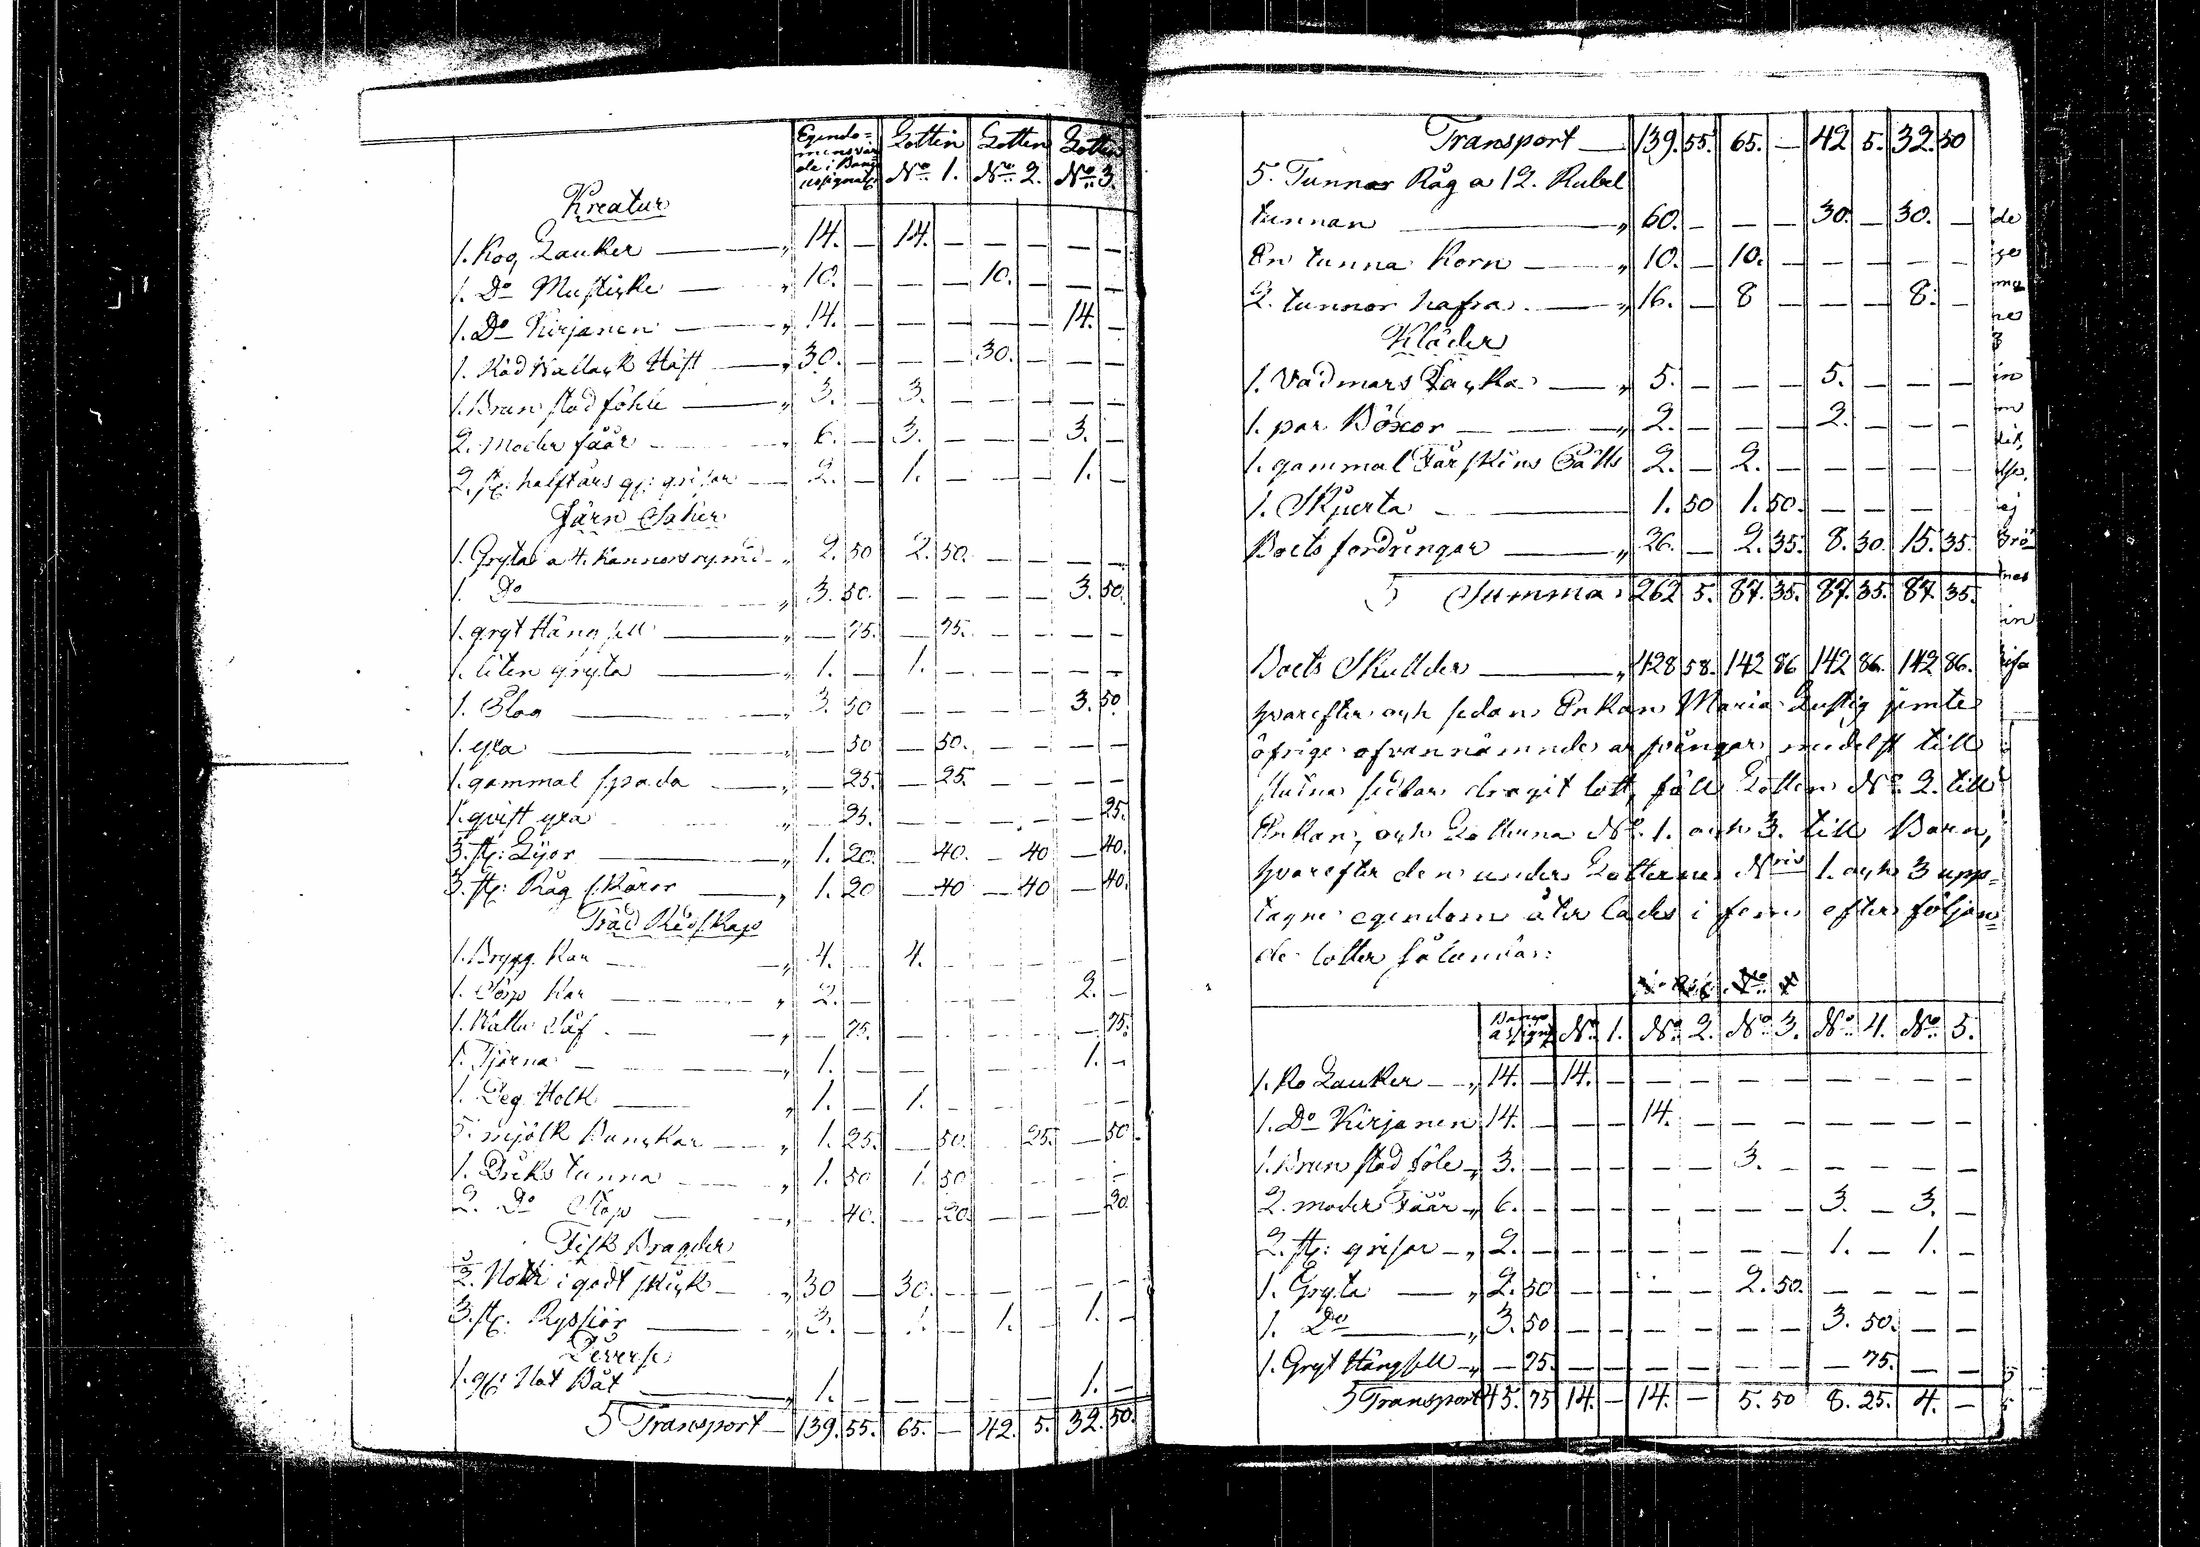 Egendo= Lotten Lotten Lotten
mens vär
de i Banco
assignat: No 1. No 2. No 3.
Kreatur
1. Ko, Lauker — „ 14. — 14. — — — — —
1. Do Mustikke — „ 10. — — — 10. — — —
1. Do Kirjanen — „ 14. — — — — — 14. —
1. Röd Vallack Häst — „ 30. — — — 30. — — —
1. Brun stod föhle — „ 3. — 3. — — — — —
2. Moder fåår — „ 6. — 3. — — — 3. —
2. st: halftårs gl: grisar — 2. — 1. — — — 1. —
Järn Saker
1. Gryta a 4. kannors rymd — „ 2. 50 2. 50. — — — —
1. Do — „ 3. 50. — — — — 3. 50.
1. gryt Häng sell — „ — 75. — 75. — — — —
1. liten gryta — „ 1. — 1. — — — — —
1. Plog — „ 3. 50 — — — — 3. 50.
1. yxa — „ — 50 — 50. — — — —
1. gammal spada — „ — 25. — 25. — — — —
1. qvist yxa „ — 25. — — — — — 25.
3. st: Lijor — „ 1. 20. — 40. — 40 — 40.
3. st: Råg skäror — „ 1. 20 — 40 — 40 — 40.
Träd Redskap
1. Brygg Kar — „ 4. — 4. — — — — —
1. Löip Kar — „ 2. — — — — — 2. —
1. Kalla Såf — „ — 75. — — — — — 75.
1. Tjärna — „ 1. — — — — — 1. —
1. Deg Holk — „ 1. — 1. — — — — —
5. mjölk Bunckar — „ 1. 25. — 50. — 25. — 50.
1. Dricks tunna — „ 1. 50 1. 50 — — — —
2. Do Stop — „ — 40. — 20. — — — 20.
Fisk Bragder
2. Notar i godt skick — „ 30 — 30. — — — — —
3. st: Ryssior — „ 3. — 1. — 1. — 1. —
Diverse
1. gl: Not Båt — „ 1. — — — — — 1. —
Transport — 139. 55. 65. — 42. 5. 32. 50.
Transport — 139. 55. 65. — 42 5. 32. 50
5. Tunnor Råg a 12. Rubel
tunnan — „ 60. — — — 30. — 30. —
En tunna Korn — „ 10. — 10. — — — — —
2. tunnor hafra — „ 16. — 8 — — — 8. —
Kläder
1. Vadmars Jacka — „ 5. — — — 5. — — —
1. par Böxor — „ 2. — — — 2. — — —
1. gammal Fårskins Pälls 2. — 2. — — — — —
1. Skjorta — 1. 50 1. 50. — — — —
Boets fordringar — „ 26. — 2. 35. 8. 30. 15. 35.
Summa 262 5. 87. 35. 87. 35. 87. 35.
Boets Skullder — „ 428 58. 142 86 142 86. 142 86.
hvarefter och sedan Enkan Maria Lustig jemte
öfrige ofvannämnde arfvingar medelst till
slutne sedlar dragit lott, föll Lotten No. 2. till
Enkan, och Lotterna No. 1. och 3. till Barn,
hvarefter den under Lotterne Nris 1. och 3 upp=
tagne egendom åter lades i fem efter följan=
de lotter sålunda:
Banco
assign No. 1. No. 2. No. 3. No. 4. No. 5.
1. Ko Lauker — „ 14. — 14. — — — — — — — — —
1. Do Kirjanen 14. — — — 14. — — — — — — —
1. Brun stod föle „ 3. — — — — — 3. — — — — —
2. moder Fåår „ 6. — — — — — — — 3. — 3. —
2. st: grisar — „ 2. — — — — — — — 1. — 1. —
1. Gryta — „ 2. 50 — — — — 2. 50. — — — —
1. Do — „ 3. 50 — — — — — — 3. 50. — —
1. Gryt Häng sell „ — 75. — — — — — — — 75. — —
Transport 45. 75 14. — 14. — 5. 50 8. 25. 4. —